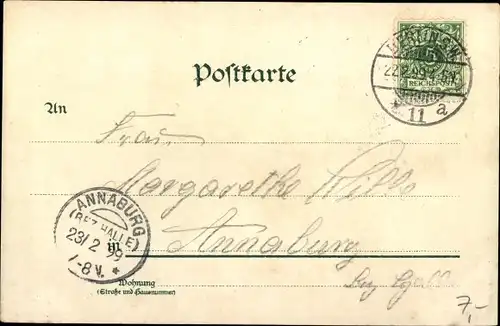 BERLIN S.W.
5
REICHSPOST
22.2.99. 7-8N.
* 11 a
Postkarte
An
Frau
Margarethe Wills
ANNABURG
(BEZ. HALLE)
23/2 99
7-8V. *
in Annaburg
Wohnung
(Straße und Hausnummer)
Bez Halle
7,-